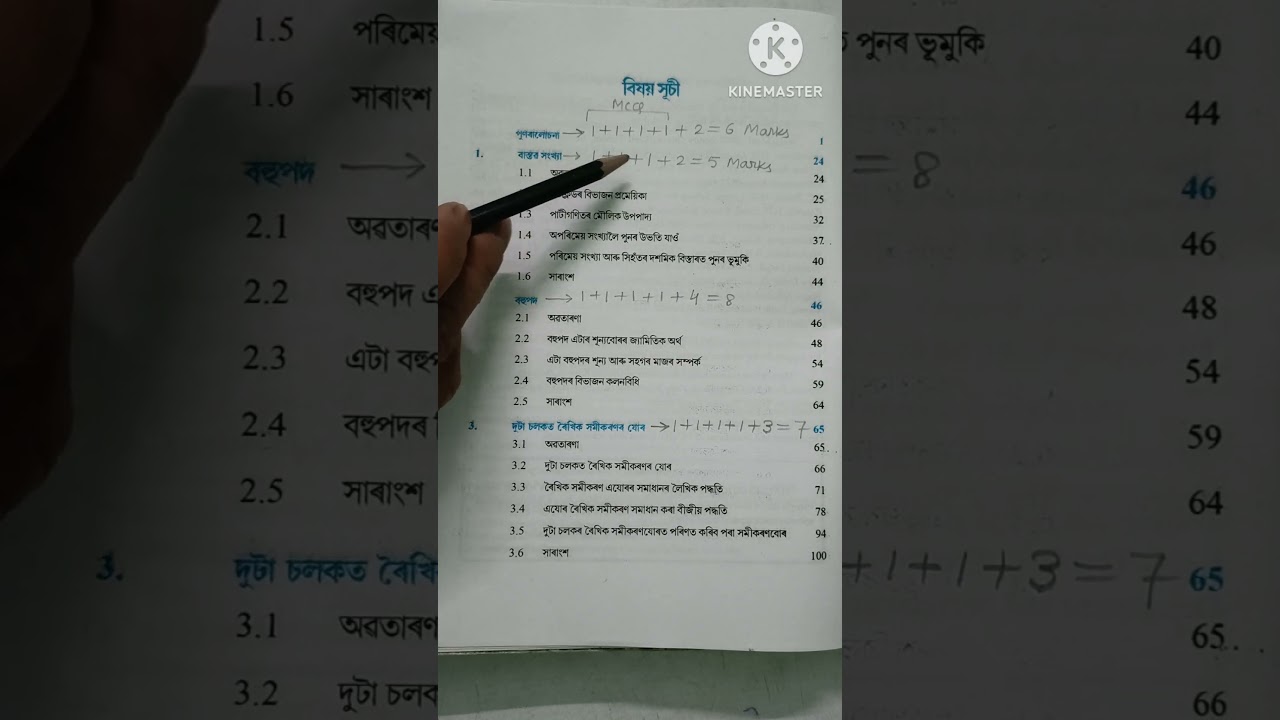 KINEMASTER
বিষয় সূচী
MCQ
পুনৰালোচনা → 1+1+1+1+2=6 Marks 1
1. বাস্তৱ সংখ্যা → 1+1+1+2=5 Marks 24
1.1 24
বিভাজন প্ৰমেয়িকা 25
1.3 পাটীগণিতৰ মৌলিক উপপাদ্য 32
1.4 অপৰিমেয় সংখ্যালৈ পুনৰ উভতি যাওঁ 37
1.5 পৰিমেয় সংখ্যা আৰু সিহঁতৰ দশমিক বিস্তাৰত পুনৰ ভূমুকি 40
1.6 সাৰাংশ 44
বহুপদ → 1+1+1+1+4=8 46
2.1 অৱতাৰণা 46
2.2 বহুপদ এটাৰ শূন্যবোৰৰ জ্যামিতিক অৰ্থ 48
2.3 এটা বহুপদৰ শূন্য আৰু সহগৰ মাজৰ সম্পৰ্ক 54
2.4 বহুপদৰ বিভাজন কলনবিধি 59
2.5 সাৰাংশ 64
3. দুটা চলকত ৰৈখিক সমীকৰণৰ যোৰ → 1+1+1+1+3=7 65
3.1 অৱতাৰণা 65
3.2 দুটা চলকত ৰৈখিক সমীকৰণৰ যোৰ 66
3.3 ৰৈখিক সমীকৰণ এযোৰৰ সমাধানৰ লৈখিক পদ্ধতি 71
3.4 এযোৰ ৰৈখিক সমীকৰণ সমাধান কৰা বীজীয় পদ্ধতি 78
3.5 দুটা চলকৰ ৰৈখিক সমীকৰণযোৰত পৰিণত কৰিব পৰা সমীকৰণবোৰ 94
3.6 সাৰাংশ 100